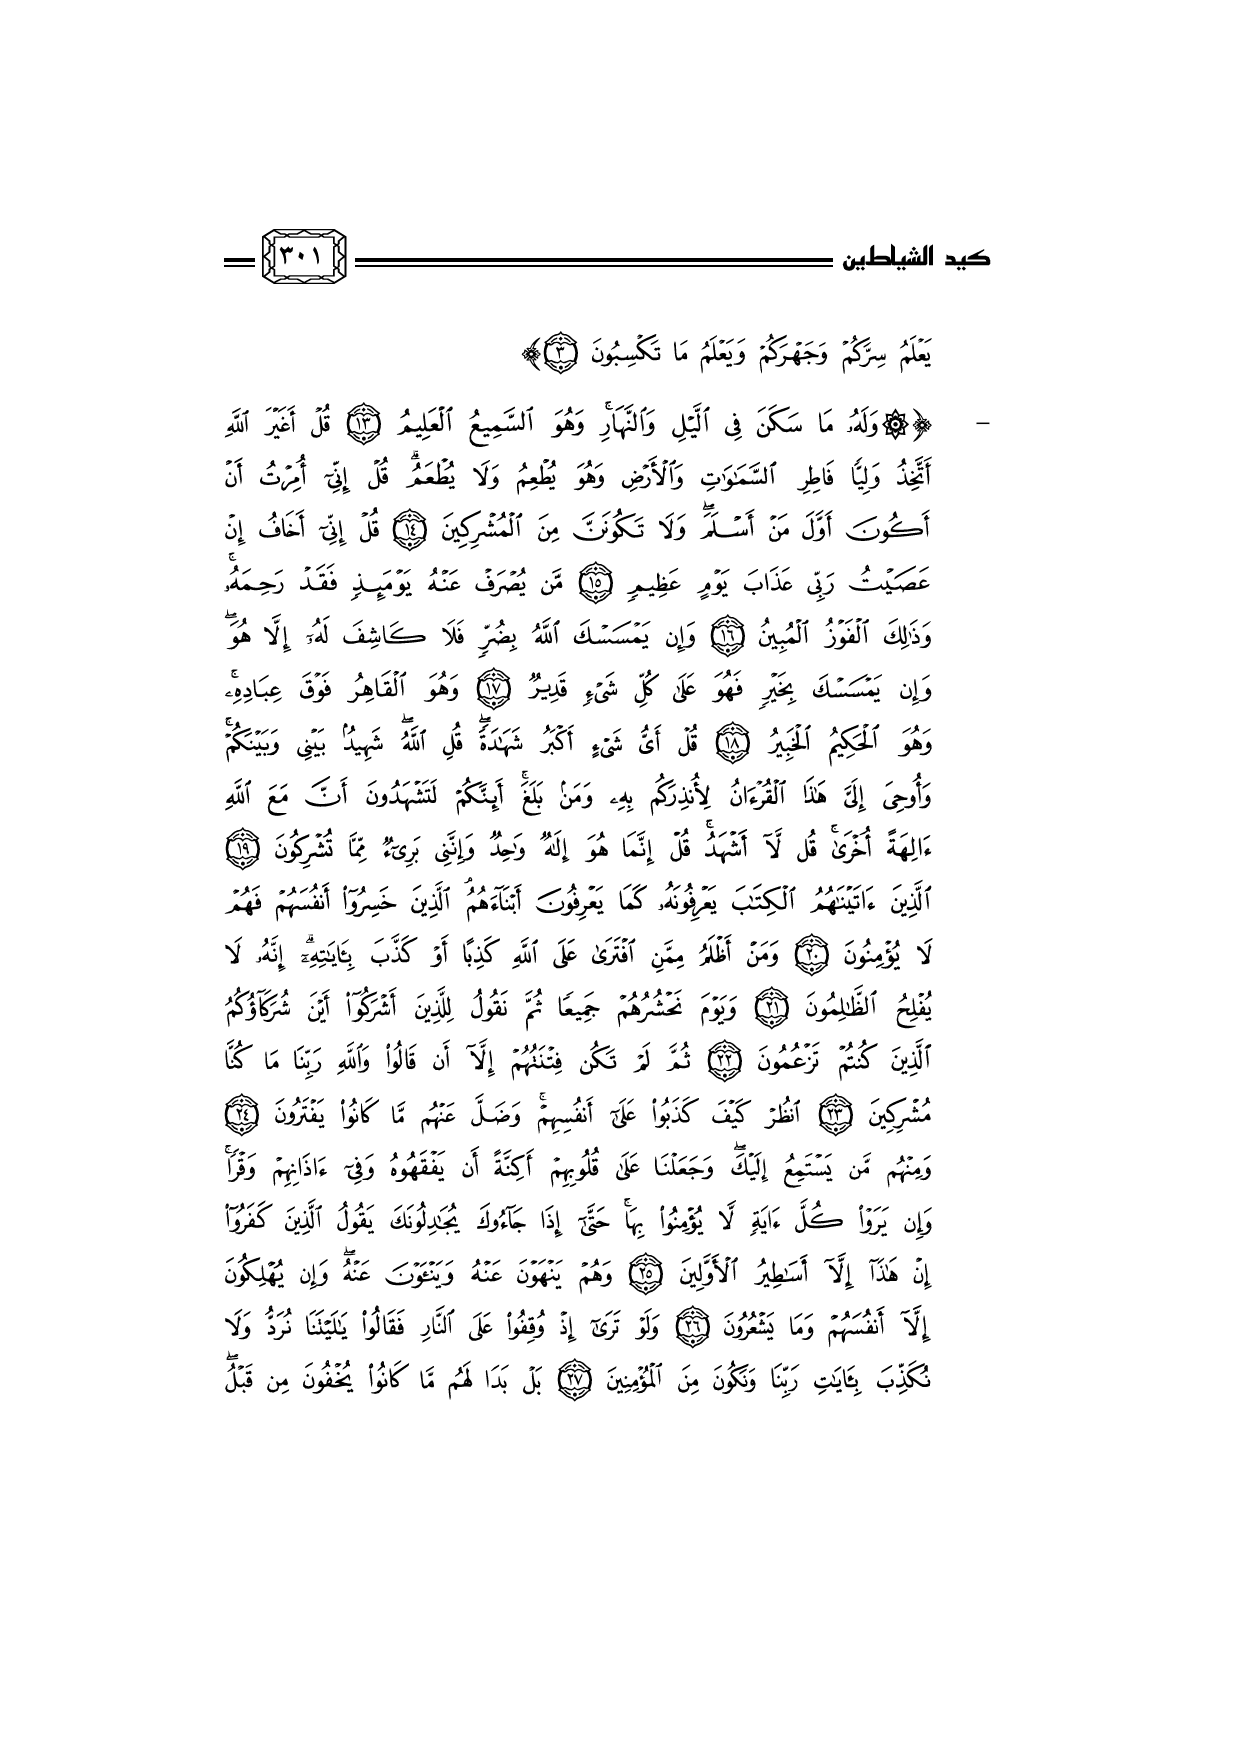 كيد الشياطين ٣٠١
يَعْلَمُ سِرَّكُمْ وَجَهْرَكُمْ وَيَعْلَمُ مَا تَكْسِبُونَ ٣﴾
– ﴿۞ وَلَهُۥ مَا سَكَنَ فِى ٱلَّيْلِ وَٱلنَّهَارِۚ وَهُوَ ٱلسَّمِيعُ ٱلْعَلِيمُ ١٣ قُلْ أَغَيْرَ ٱللَّهِ
أَتَّخِذُ وَلِيًّا فَاطِرِ ٱلسَّمَٰوَٰتِ وَٱلْأَرْضِ وَهُوَ يُطْعِمُ وَلَا يُطْعَمُۗ قُلْ إِنِّىٓ أُمِرْتُ أَنْ
أَكُونَ أَوَّلَ مَنْ أَسْلَمَۖ وَلَا تَكُونَنَّ مِنَ ٱلْمُشْرِكِينَ ١٤ قُلْ إِنِّىٓ أَخَافُ إِنْ
عَصَيْتُ رَبِّى عَذَابَ يَوْمٍ عَظِيمٍ ١٥ مَّن يُصْرَفْ عَنْهُ يَوْمَئِذٍ فَقَدْ رَحِمَهُۥۚ
وَذَٰلِكَ ٱلْفَوْزُ ٱلْمُبِينُ ١٦ وَإِن يَمْسَسْكَ ٱللَّهُ بِضُرٍّ فَلَا كَاشِفَ لَهُۥٓ إِلَّا هُوَۖ
وَإِن يَمْسَسْكَ بِخَيْرٍ فَهُوَ عَلَىٰ كُلِّ شَىْءٍ قَدِيرٌ ١٧ وَهُوَ ٱلْقَاهِرُ فَوْقَ عِبَادِهِۦۚ
وَهُوَ ٱلْحَكِيمُ ٱلْخَبِيرُ ١٨ قُلْ أَىُّ شَىْءٍ أَكْبَرُ شَهَٰدَةًۖ قُلِ ٱللَّهُۖ شَهِيدٌۢ بَيْنِى وَبَيْنَكُمْۚ
وَأُوحِىَ إِلَىَّ هَٰذَا ٱلْقُرْءَانُ لِأُنذِرَكُم بِهِۦ وَمَنۢ بَلَغَۚ أَئِنَّكُمْ لَتَشْهَدُونَ أَنَّ مَعَ ٱللَّهِ
ءَالِهَةً أُخْرَىٰۚ قُل لَّآ أَشْهَدُۚ قُلْ إِنَّمَا هُوَ إِلَٰهٌ وَٰحِدٌ وَإِنَّنِى بَرِىٓءٌ مِّمَّا تُشْرِكُونَ ١٩
ٱلَّذِينَ ءَاتَيْنَٰهُمُ ٱلْكِتَٰبَ يَعْرِفُونَهُۥ كَمَا يَعْرِفُونَ أَبْنَآءَهُمُۘ ٱلَّذِينَ خَسِرُوٓا۟ أَنفُسَهُمْ فَهُمْ
لَا يُؤْمِنُونَ ٢٠ وَمَنْ أَظْلَمُ مِمَّنِ ٱفْتَرَىٰ عَلَى ٱللَّهِ كَذِبًا أَوْ كَذَّبَ بِـَٔايَٰتِهِۦٓۗ إِنَّهُۥ لَا
يُفْلِحُ ٱلظَّٰلِمُونَ ٢١ وَيَوْمَ نَحْشُرُهُمْ جَمِيعًا ثُمَّ نَقُولُ لِلَّذِينَ أَشْرَكُوٓا۟ أَيْنَ شُرَكَآؤُكُمُ
ٱلَّذِينَ كُنتُمْ تَزْعُمُونَ ٢٢ ثُمَّ لَمْ تَكُن فِتْنَتُهُمْ إِلَّآ أَن قَالُوا۟ وَٱللَّهِ رَبِّنَا مَا كُنَّا
مُشْرِكِينَ ٢٣ ٱنظُرْ كَيْفَ كَذَبُوا۟ عَلَىٰٓ أَنفُسِهِمْۚ وَضَلَّ عَنْهُم مَّا كَانُوا۟ يَفْتَرُونَ ٢٤
وَمِنْهُم مَّن يَسْتَمِعُ إِلَيْكَۖ وَجَعَلْنَا عَلَىٰ قُلُوبِهِمْ أَكِنَّةً أَن يَفْقَهُوهُ وَفِىٓ ءَاذَانِهِمْ وَقْرًاۚ
وَإِن يَرَوْا۟ كُلَّ ءَايَةٍ لَّا يُؤْمِنُوا۟ بِهَاۚ حَتَّىٰٓ إِذَا جَآءُوكَ يُجَٰدِلُونَكَ يَقُولُ ٱلَّذِينَ كَفَرُوٓا۟
إِنْ هَٰذَآ إِلَّآ أَسَٰطِيرُ ٱلْأَوَّلِينَ ٢٥ وَهُمْ يَنْهَوْنَ عَنْهُ وَيَنْـَٔوْنَ عَنْهُۖ وَإِن يُهْلِكُونَ
إِلَّآ أَنفُسَهُمْ وَمَا يَشْعُرُونَ ٢٦ وَلَوْ تَرَىٰٓ إِذْ وُقِفُوا۟ عَلَى ٱلنَّارِ فَقَالُوا۟ يَٰلَيْتَنَا نُرَدُّ وَلَا
نُكَذِّبَ بِـَٔايَٰتِ رَبِّنَا وَنَكُونَ مِنَ ٱلْمُؤْمِنِينَ ٢٧ بَلْ بَدَا لَهُم مَّا كَانُوا۟ يُخْفُونَ مِن قَبْلُۖ